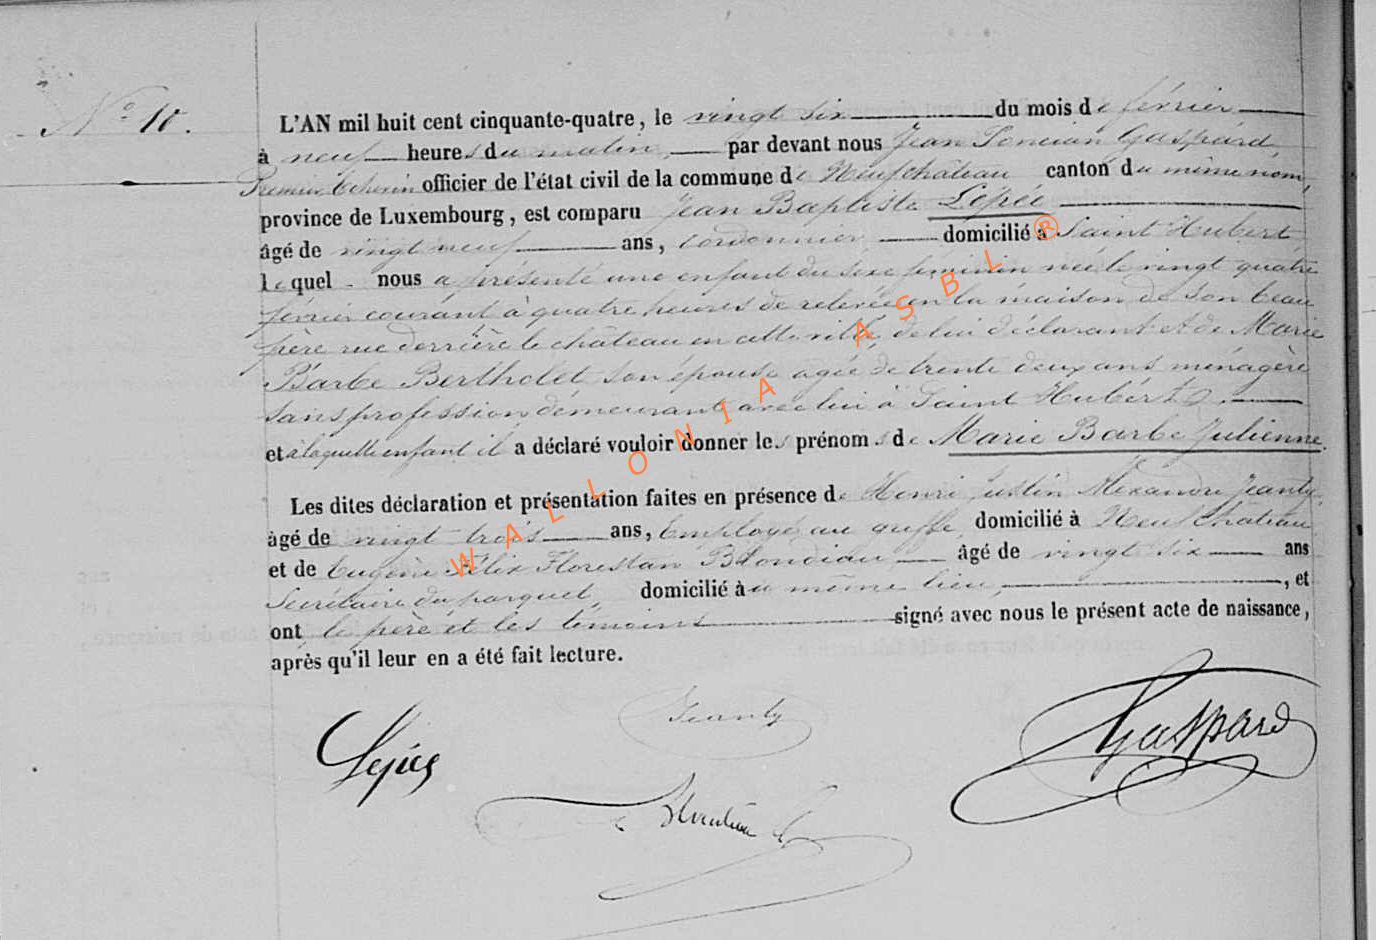 N° 10.
L'AN mil huit cent cinquante-quatre, le vingt six du mois de février
à neuf heures du matin, par devant nous Jean Poncian Gaspard,
Premier Echevin officier de l'état civil de la commune de Neufchâteau canton du même nom,
province de Luxembourg, est comparu Jean Baptiste Lépée
âgé de vingt neuf ans, cordonnier domicilié à Saint Hubert
lequel nous a présenté une enfant du sexe féminin née le vingt quatre
février courant à quatre heures de relevée en la maison de son beau
père rue derrière le château en cette ville, de lui déclarant et de Marie
Barbe Bertholet son épouse agée de trente deux ans ménagère
sans profession demeurant avec lui à Saint Hubert
et à laquelle enfant il a déclaré vouloir donner les prénoms de Marie Barbe Julienne.
Les dites déclaration et présentation faites en présence de Henri Justin Alexandre Jeanty
âgé de vingt trois ans, Employé au greffe, domicilié à Neufchâteau
et de Eugène Félix Florestan Blondiau âgé de vingt six ans
Secrétaire du parquet, domicilié au même lieu, et
ont le père et les témoins signé avec nous le présent acte de naissance,
après qu'il leur en a été fait lecture.
Jeanty
Lépée
Gaspard
WALLONIA ASBL ®